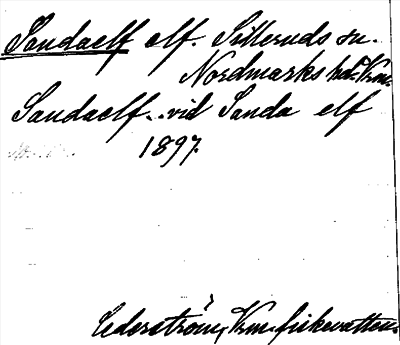 Sandaelf elf. Silleruds sn.
Nordmarks hd. Vrm.
Sandaelf.. vid Sanda elf
1897.
Cederström, Vrm. fiskevatten.